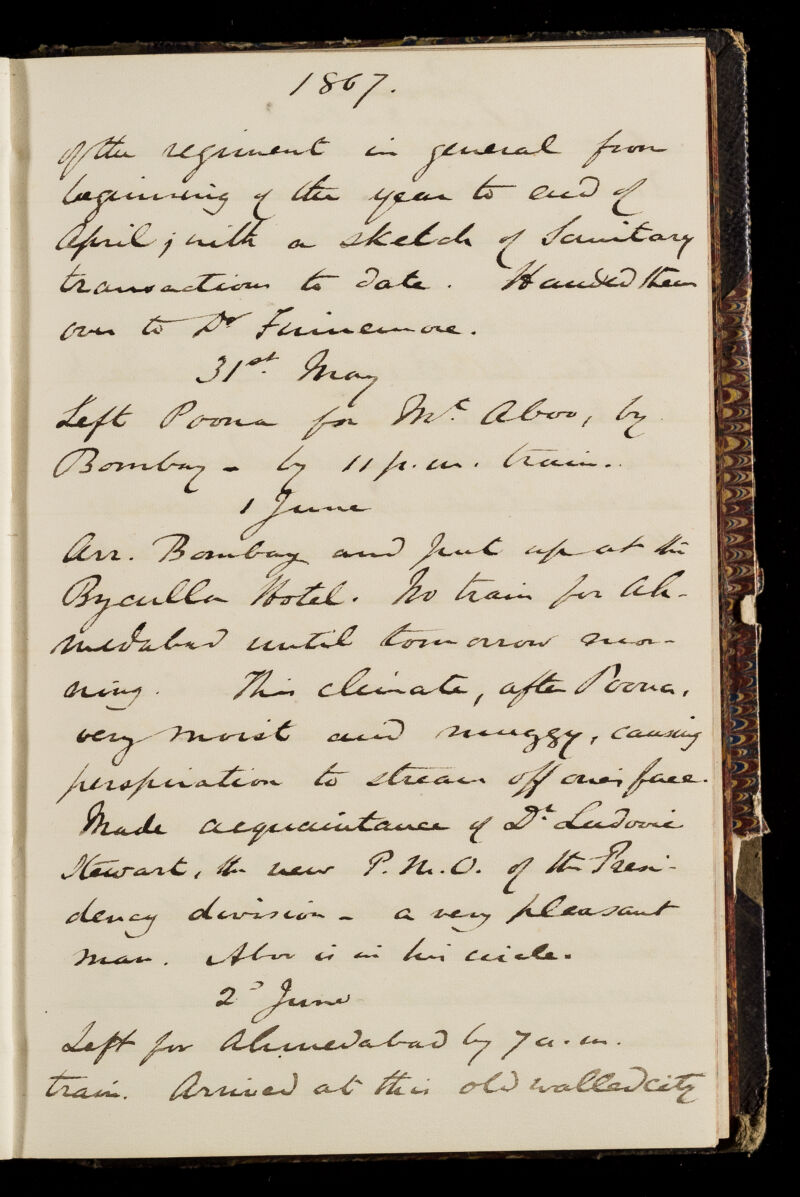 1867.
of the regiment in general from
beginning of the year to end of
April; with a sketch of Sanitary
transactions to date. Handed them
over to Dr Finnemore.
31st. May
Left Poona for Mt. Aboo, by
Bombay - by 11 p.m. train.
1 June
Arr. Bombay and put up at the
Byculla Hotel. No train for Ah-
medabad until tomorrow mor-
ning. This climate, after Poona,
very moist and muggy, causing
perspiration to stream off one's face.
Made acquaintance of Dr. Ludovic
Stewart, the new P.M.O. of the Presi-
dency division - a very pleasant
man. Aboo is in his circle.
2d June
Left for Ahmedabad by 7 a.m.
train. Arrived at this old walled city